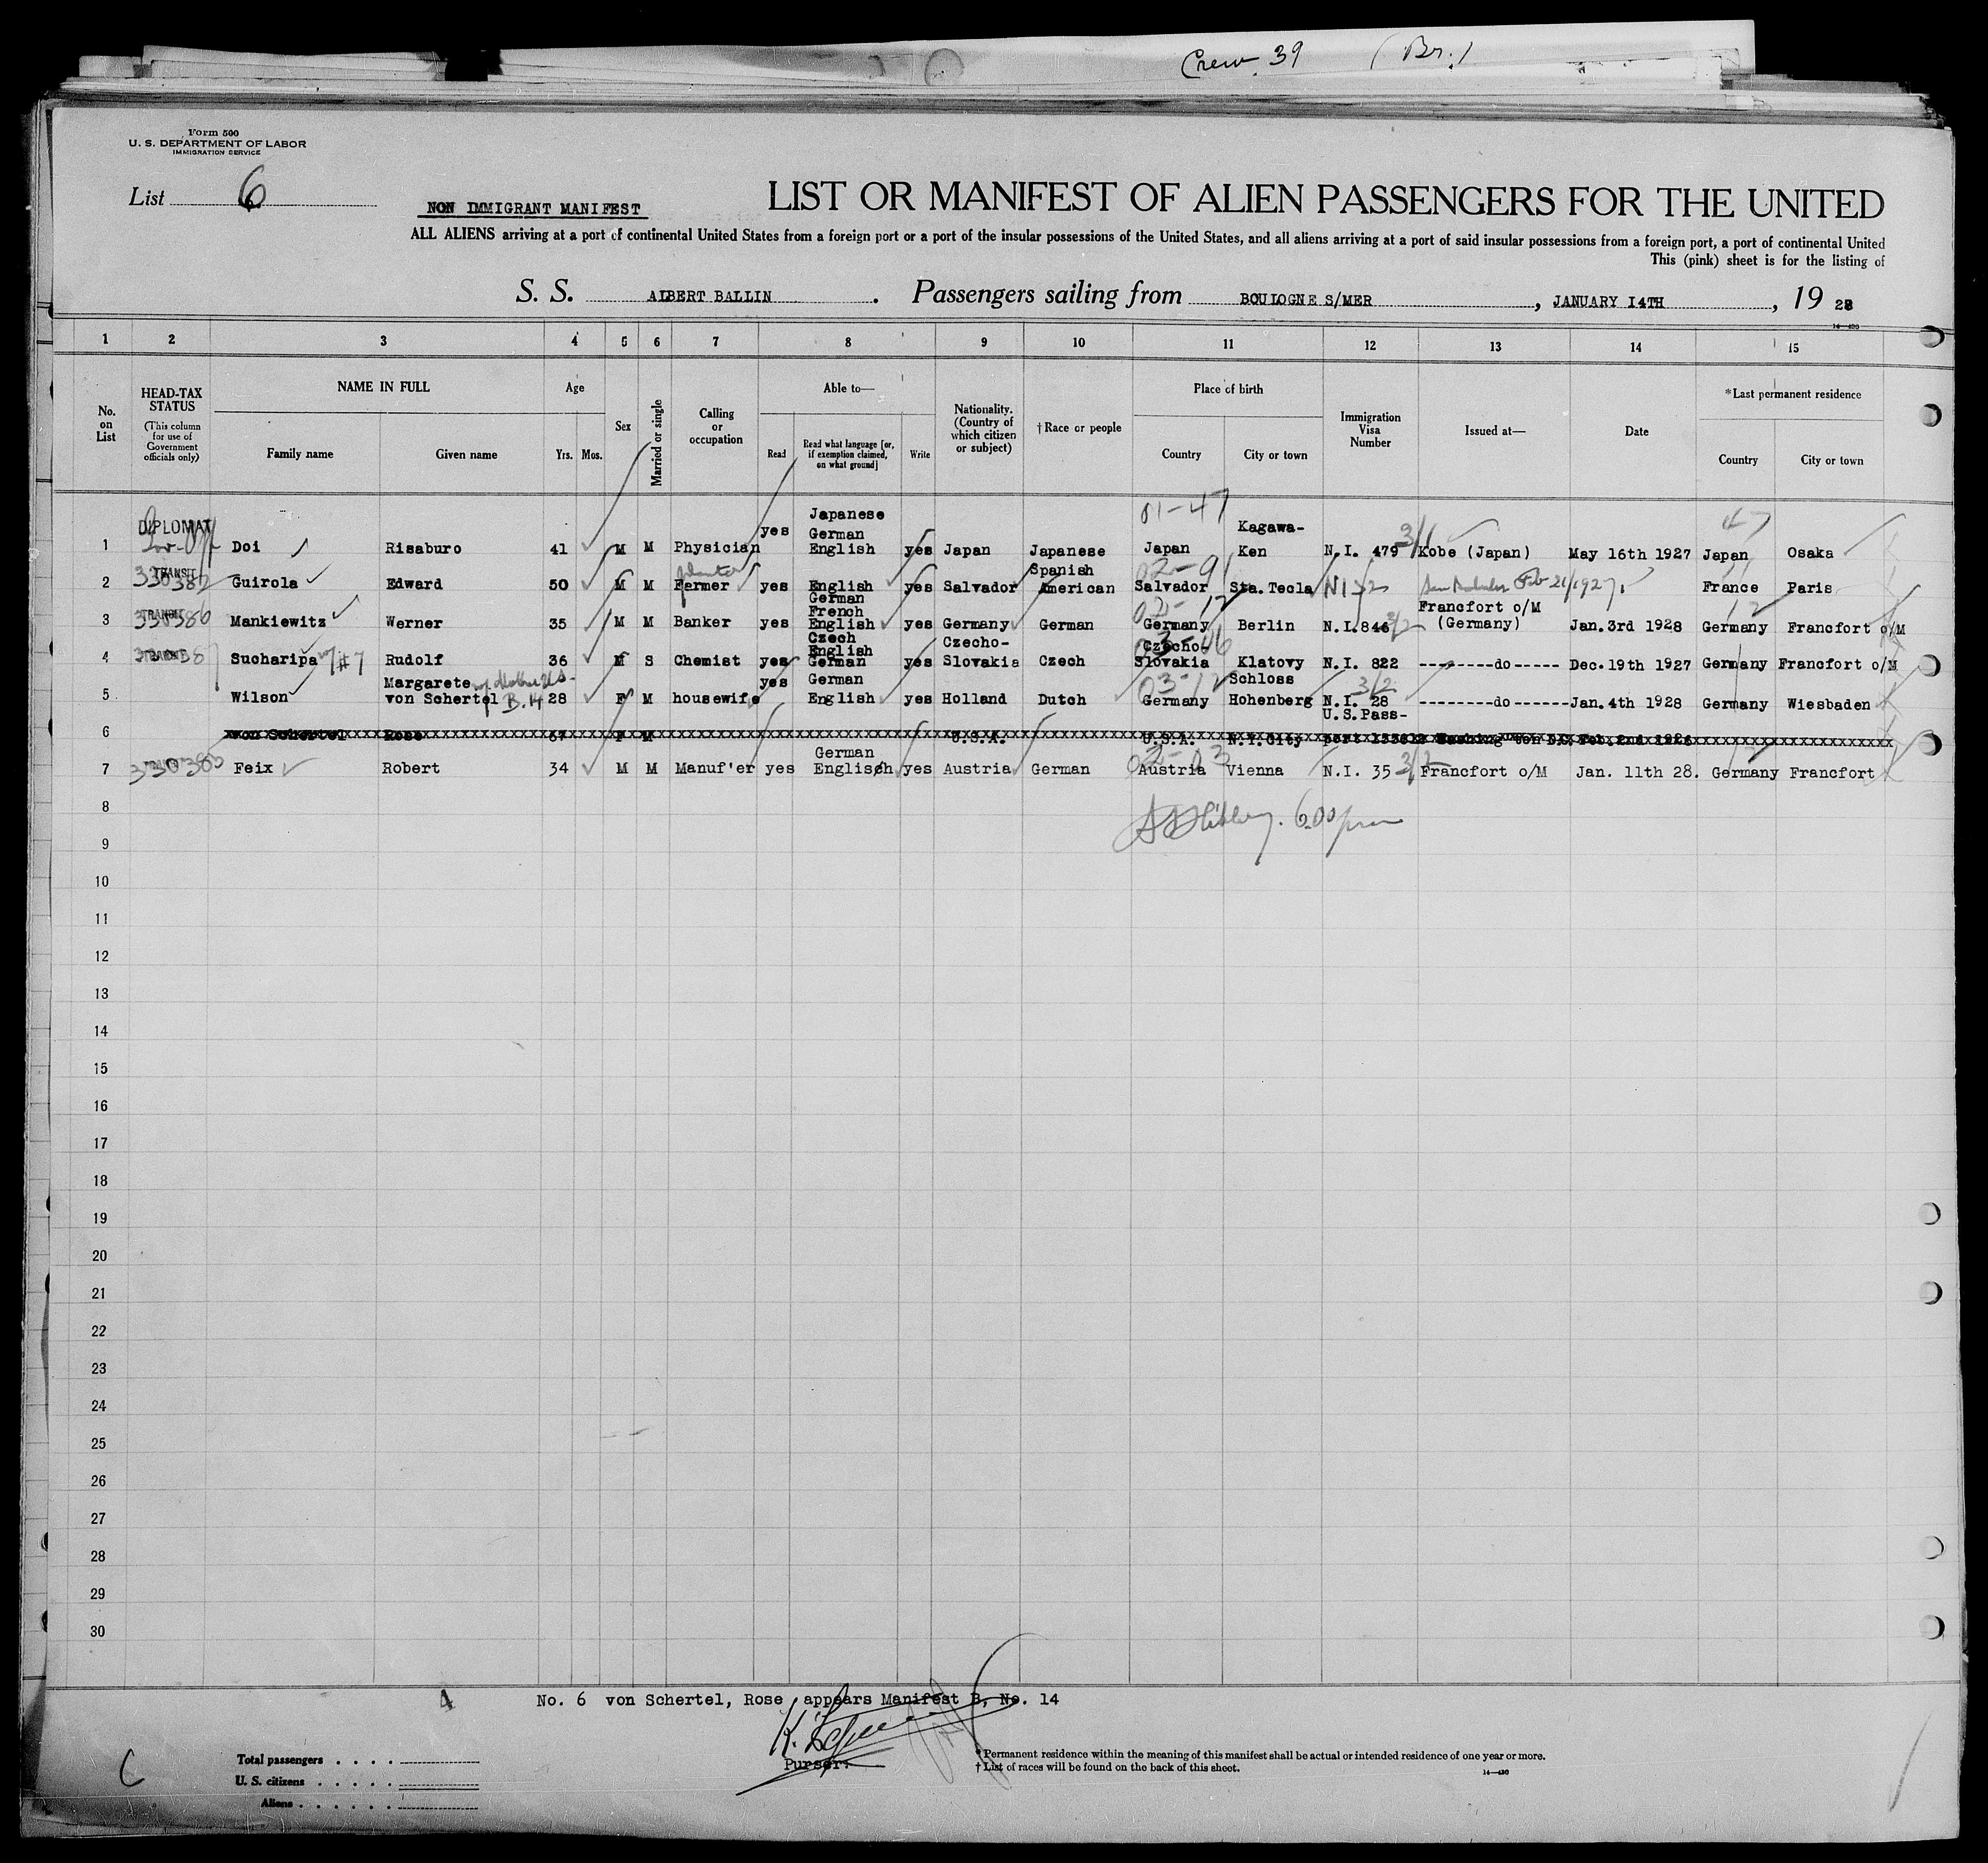 Crew 39 (Br.)
Form 500
U. S. DEPARTMENT OF LABOR
IMMIGRATION SERVICE
List 6
NON IMMIGRANT MANIFEST
LIST OR MANIFEST OF ALIEN PASSENGERS FOR THE UNITED
ALL ALIENS arriving at a port of continental United States from a foreign port or a port of the insular possessions of the United States, and all aliens arriving at a port of said insular possessions from a foreign port, a port of continental United
This (pink) sheet is for the listing of
S. S. ALBERT BALLIN . Passengers sailing from BOULOGNE S/MER , JANUARY 14TH , 19 28
1 2 3 4 5 6 7 8 9 10 11 12 13 14 15
No. on List
HEAD-TAX STATUS (This column for use of Government officials only)
NAME IN FULL
Family name Given name
Age
Yrs. Mos.
Sex
Married or single
Calling or occupation
Able to—
Read Read what language [or, if exemption claimed, on what ground] Write
Nationality. (Country of which citizen or subject)
†Race or people
Place of birth
Country City or town
Immigration Visa Number
Issued at—
Date
*Last permanent residence
Country City or town
1 DIPLOMAT Doi Risaburo 41 M M Physician yes Japanese German English yes Japan Japanese 01-47 Japan Kagawa-Ken N.I. 479 3/1 Kobe (Japan) May 16th 1927 47 Japan Osaka
2 TRANSIT 330382 Guirola Edward 50 M M planter Fermer yes English yes Salvador Spanish American 02-91 Salvador Sta. Tecla Feb 21/1927 France Paris
3 TRANSIT 330386 Mankiewitz Werner 35 M M Banker yes German French English yes Germany German 02-12 Germany Berlin N.I.846 3/2 Francfort o/M (Germany) Jan.3rd 1928 12 Germany Francfort o/M
4 Sucharipa #7 Rudolf 36 M S Chemist yes Czech English German yes Czecho-Slovakia Czech 03-46 Czecho Slovakia Klatovy N.I. 822 --------do----- Dec.19th 1927 Germany Francfort o/M
5 Wilson Margarete von Schertel B.14 28 F M housewife yes German English yes Holland Dutch 03-12 Germany Schloss Hohenberg 3/2 N.I. 28 --------do------ Jan.4th 1928 Germany Wiesbaden
6 von Schertel Rose 67 F M U.S.A. U.S.A. N.Y.City U.S.Pass-port Feb.2nd 1926
7 330380 Feix Robert 34 M M Manuf'er yes German Englisch yes Austria German 02-03 Austria Vienna N.I. 35 3/2 Francfort o/M Jan. 11th 28. Germany Francfort
8
6.00 pm
9
10
11
12
13
14
15
16
17
18
19
20
21
22
23
24
25
26
27
28
29
30
4 No. 6 von Schertel, Rose appears Manifest B, No. 14
Purser.
Total passengers . . . .
U. S. citizens . . . . .
Aliens . . . . . .
* Permanent residence within the meaning of this manifest shall be actual or intended residence of one year or more.
† List of races will be found on the back of this sheet.
14—430